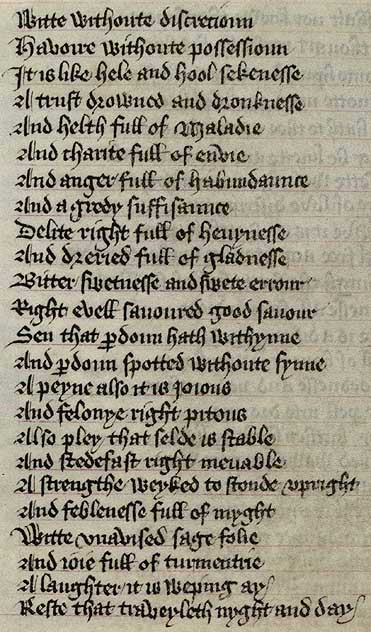 Witte withoute discretioun
Havoire withoute possessioun
It is like hele and hool sekenesse
A trust drowned and dronknesse
And helth full of maladie
And charite full of envie
And anger full of habundaunce
And a gredy suffisaunce
Delite right full of hevynesse
And dreried full of gladnesse
Bitter swetnesse and swete errour
Right evell savoured good savour
Sen that pdoun hath withynne
And pdoun spotted withoute synne
A peyne also it is joious
And felonye right pitous
Also pley that selde is stable
And stedefast right mevable
A strengthe weyked to stonde upright
And feblenesse full of myght
Witte unavised sage folie
And ioie full of turmentrie
A laughter it is weping ay
Reste that traveyleth nyght and day